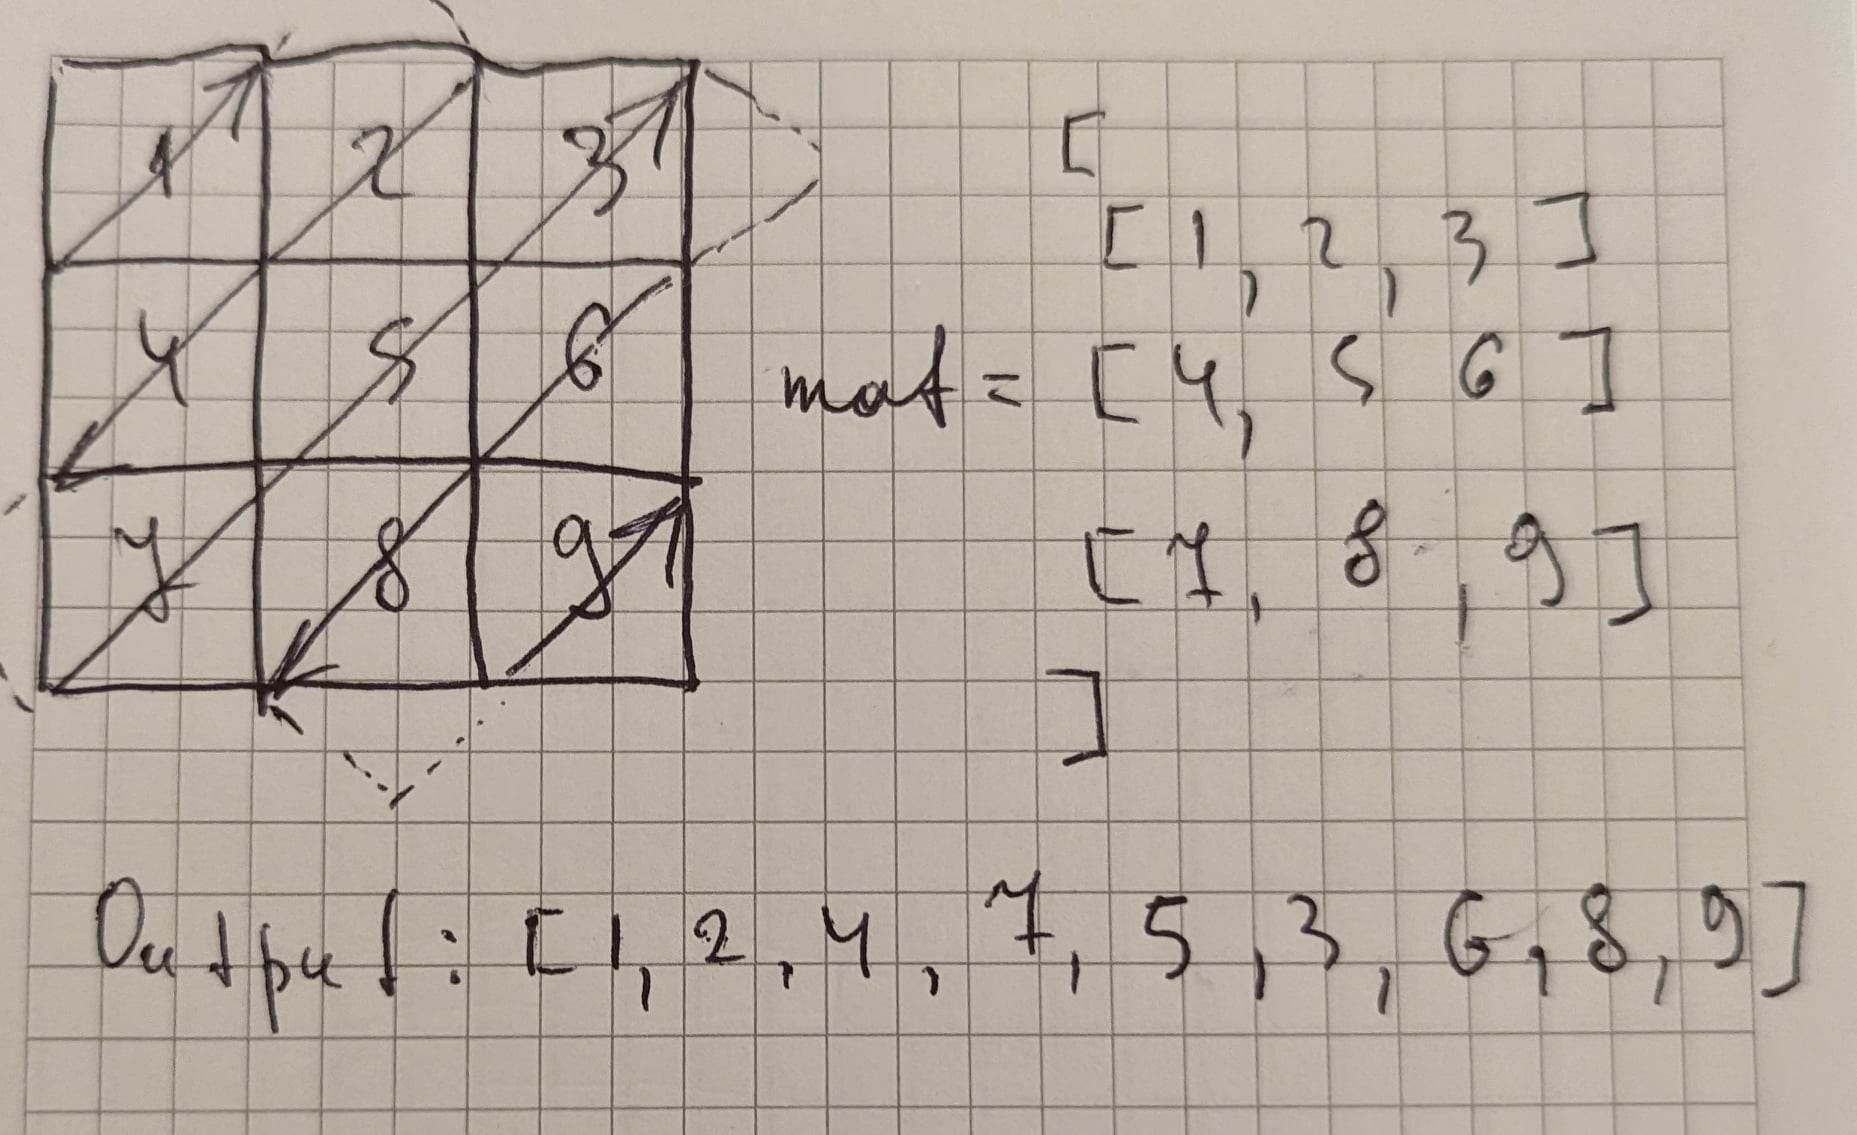 1 2 3
4 5 6
7 8 9
[
[ 1, 2, 3 ]
mat = [ 4, 5 6 ]
[ 7, 8 , 9 ]
]
Output: [ 1, 2, 4, 7, 5, 3, 6, 8, 9 ]